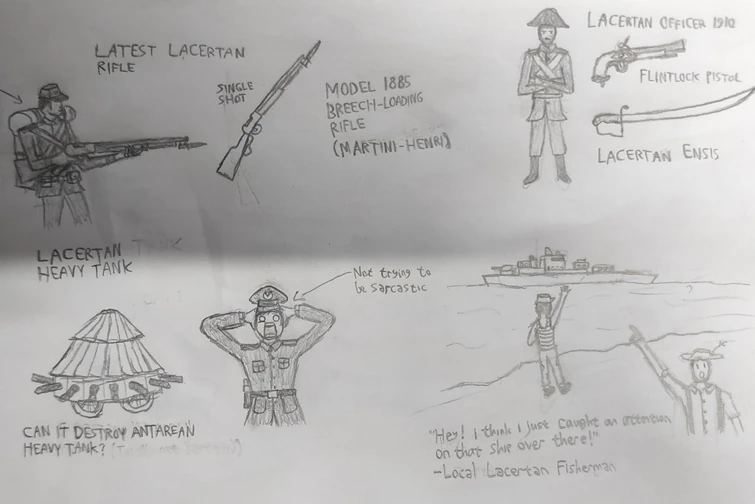 LATEST LACERTAN
RIFLE
SINGLE
SHOT
MODEL 1885
BREECH-LOADING
RIFLE
(MARTINI-HENRI)
LACERTAN OFFICER 1910
FLINTLOCK PISTOL
LACERTAN ENSIS
LACERTAN
HEAVY TANK
Not trying to
be sarcastic
CAN IT DESTROY ANTAREAN
HEAVY TANK?
"Hey! i think I just caught an attention
on that ship over there!"
-Local Lacertan Fisherman